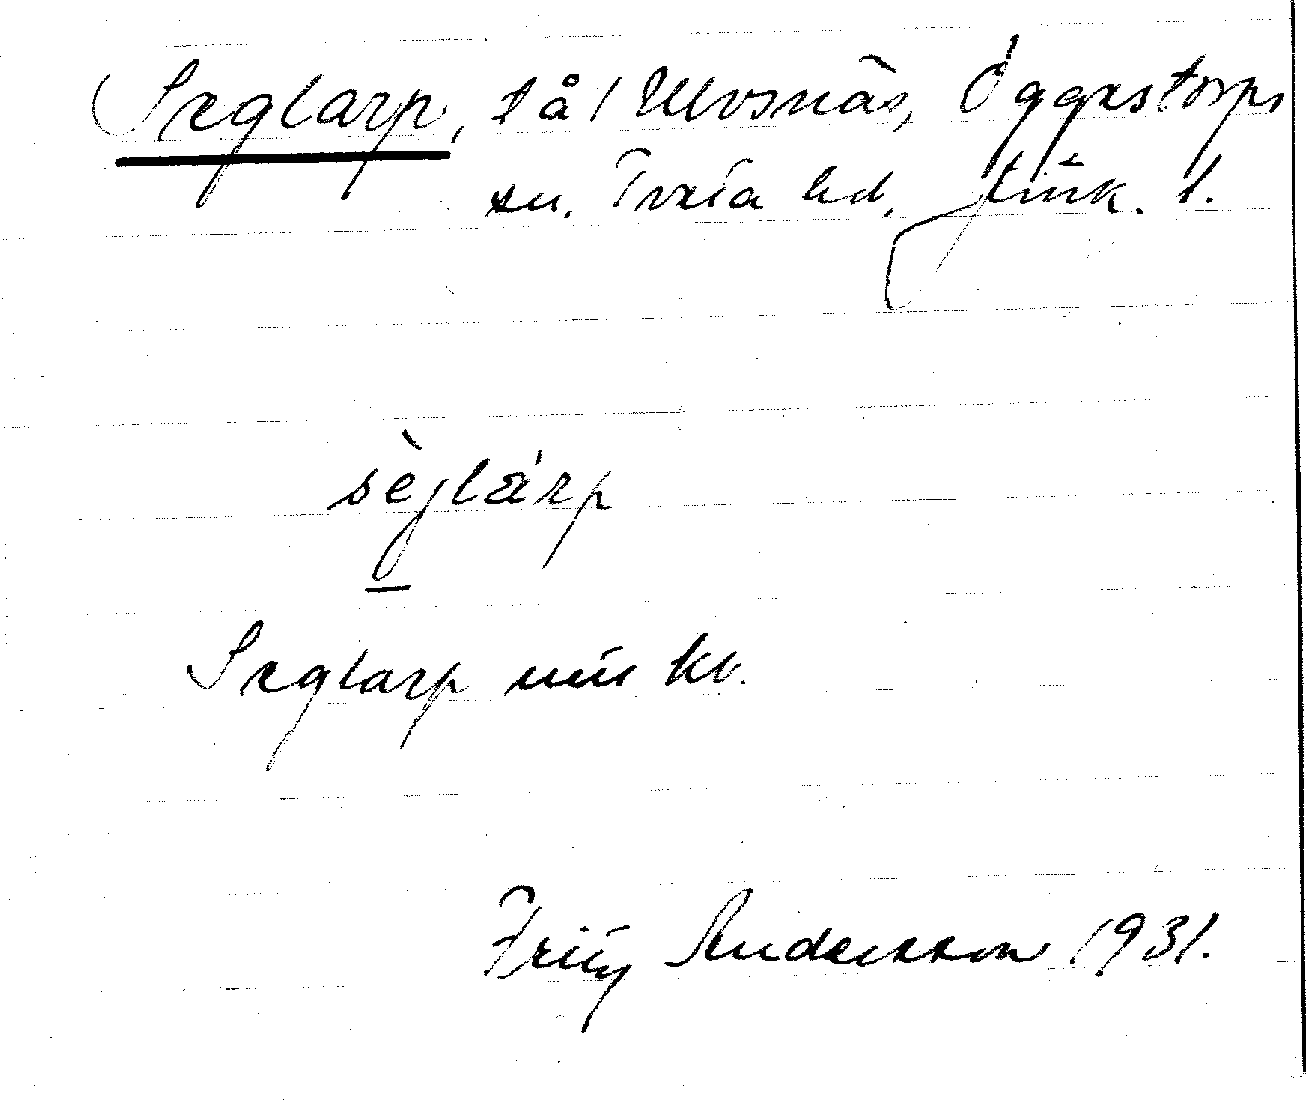 Seglarp, t å / Ulvsnäs, Öggestorps
sn. Tveta hd, Jönk. l.
sèjlárp
Seglarp kb.
Fritz Andersson 1931.